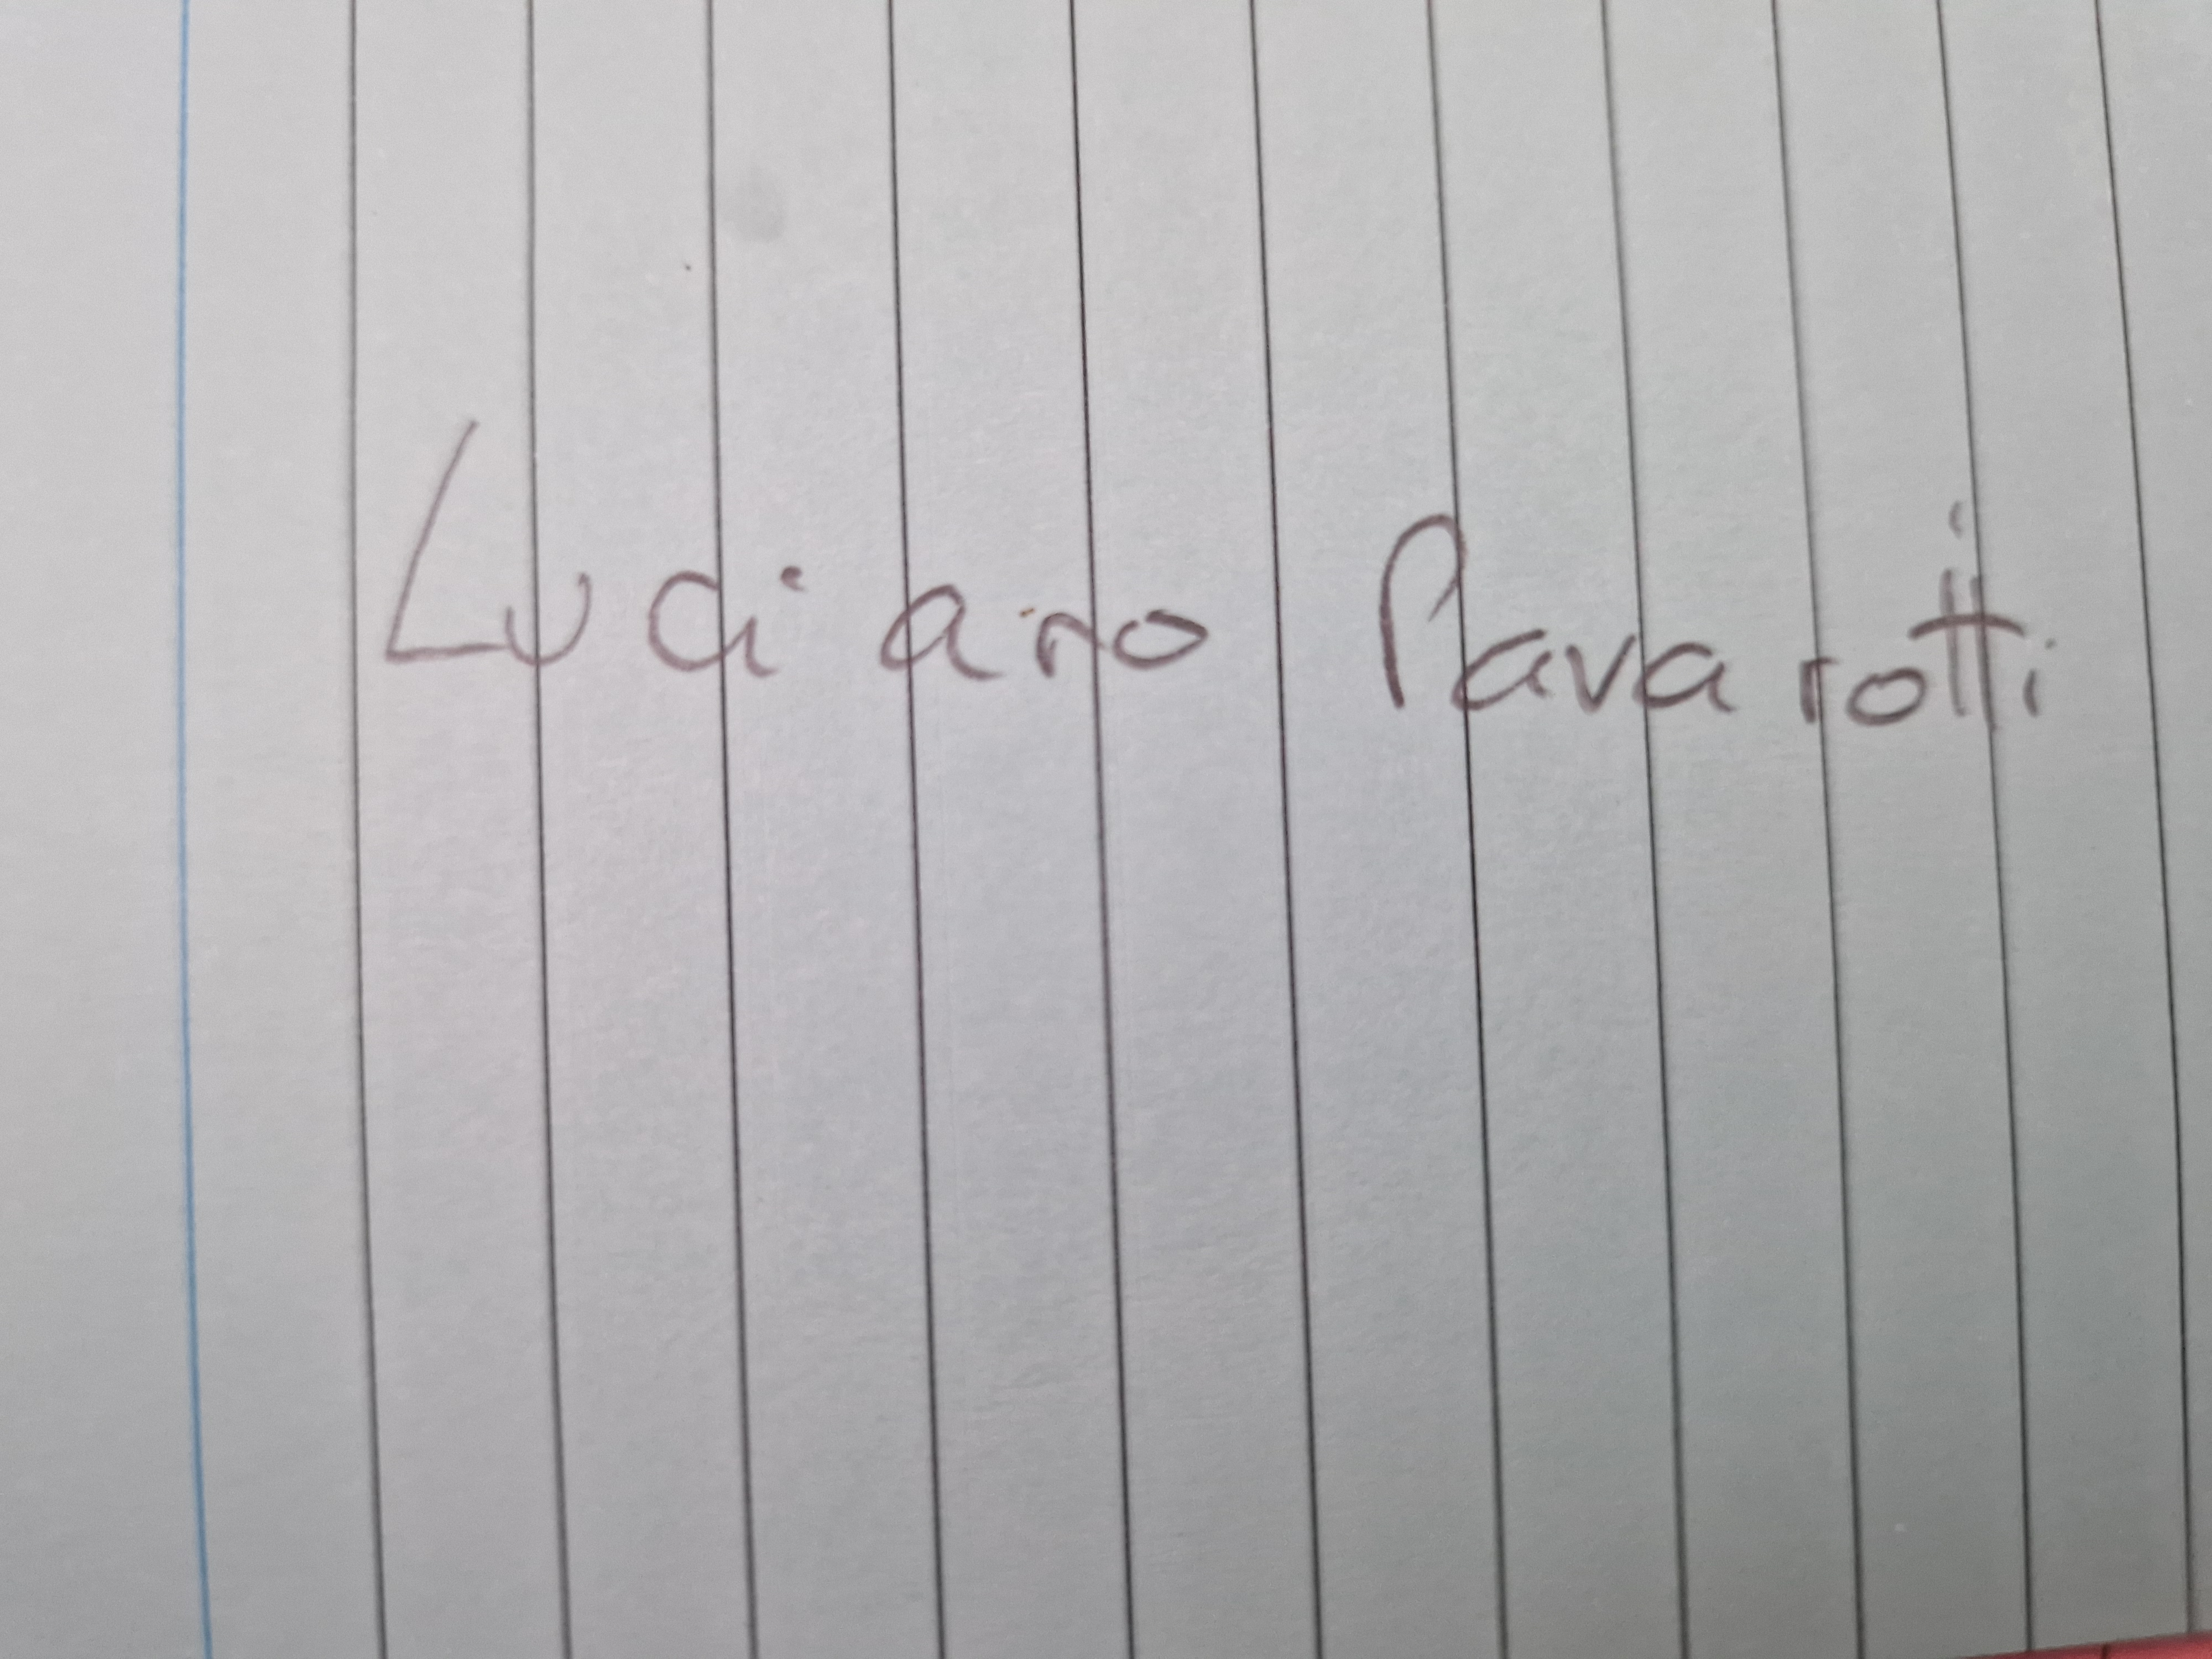 Luciano Pavarotti